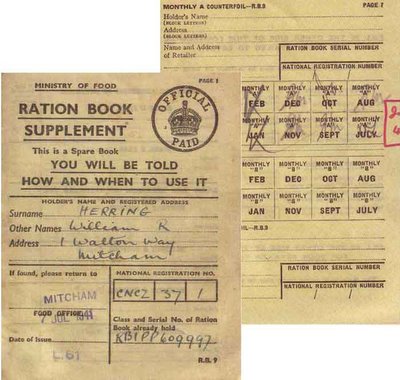 MONTHLY A COUNTERFOIL—R.B.9 PAGE 7
Holder's Name
(BLOCK LETTERS)
Address
(BLOCK LETTERS)
Name and Address
of Retailer
RATION BOOK SERIAL NUMBER
NATIONAL REGISTRATION NUMBER
MONTHLY "A" MONTHLY "A" MONTHLY "A" MONTHLY "A"
FEB DEC OCT AUG
MONTHLY "A" MONTHLY "A" MONTHLY "A" MONTHLY "A"
JAN NOV SEPT JULY
MONTHLY "B" MONTHLY "B" MONTHLY "B" MONTHLY "B"
FEB DEC OCT AUG
MONTHLY "B" MONTHLY "B" MONTHLY "B" MONTHLY "B"
JAN NOV SEPT JULY
FOIL—R.B.9
RATION BOOK SERIAL NUMBER
NATIONAL REGISTRATION NUMBER
MINISTRY OF FOOD
PAGE 1
RATION BOOK
SUPPLEMENT
OFFICIAL
PAID
This is a Spare Book
YOU WILL BE TOLD
HOW AND WHEN TO USE IT
HOLDER'S NAME AND REGISTERED ADDRESS
Surname HERRING
Other Names William R
Address 1 Walton Way
Mitcham
If found, please return to
NATIONAL REGISTRATION NO.
MITCHAM
CNCZ 37 1
FOOD OFFICE
7 JUL 1941
Class and Serial No. of Ration
Book already held
Date of Issue
RB1PP609997
L.61
R.B. 9